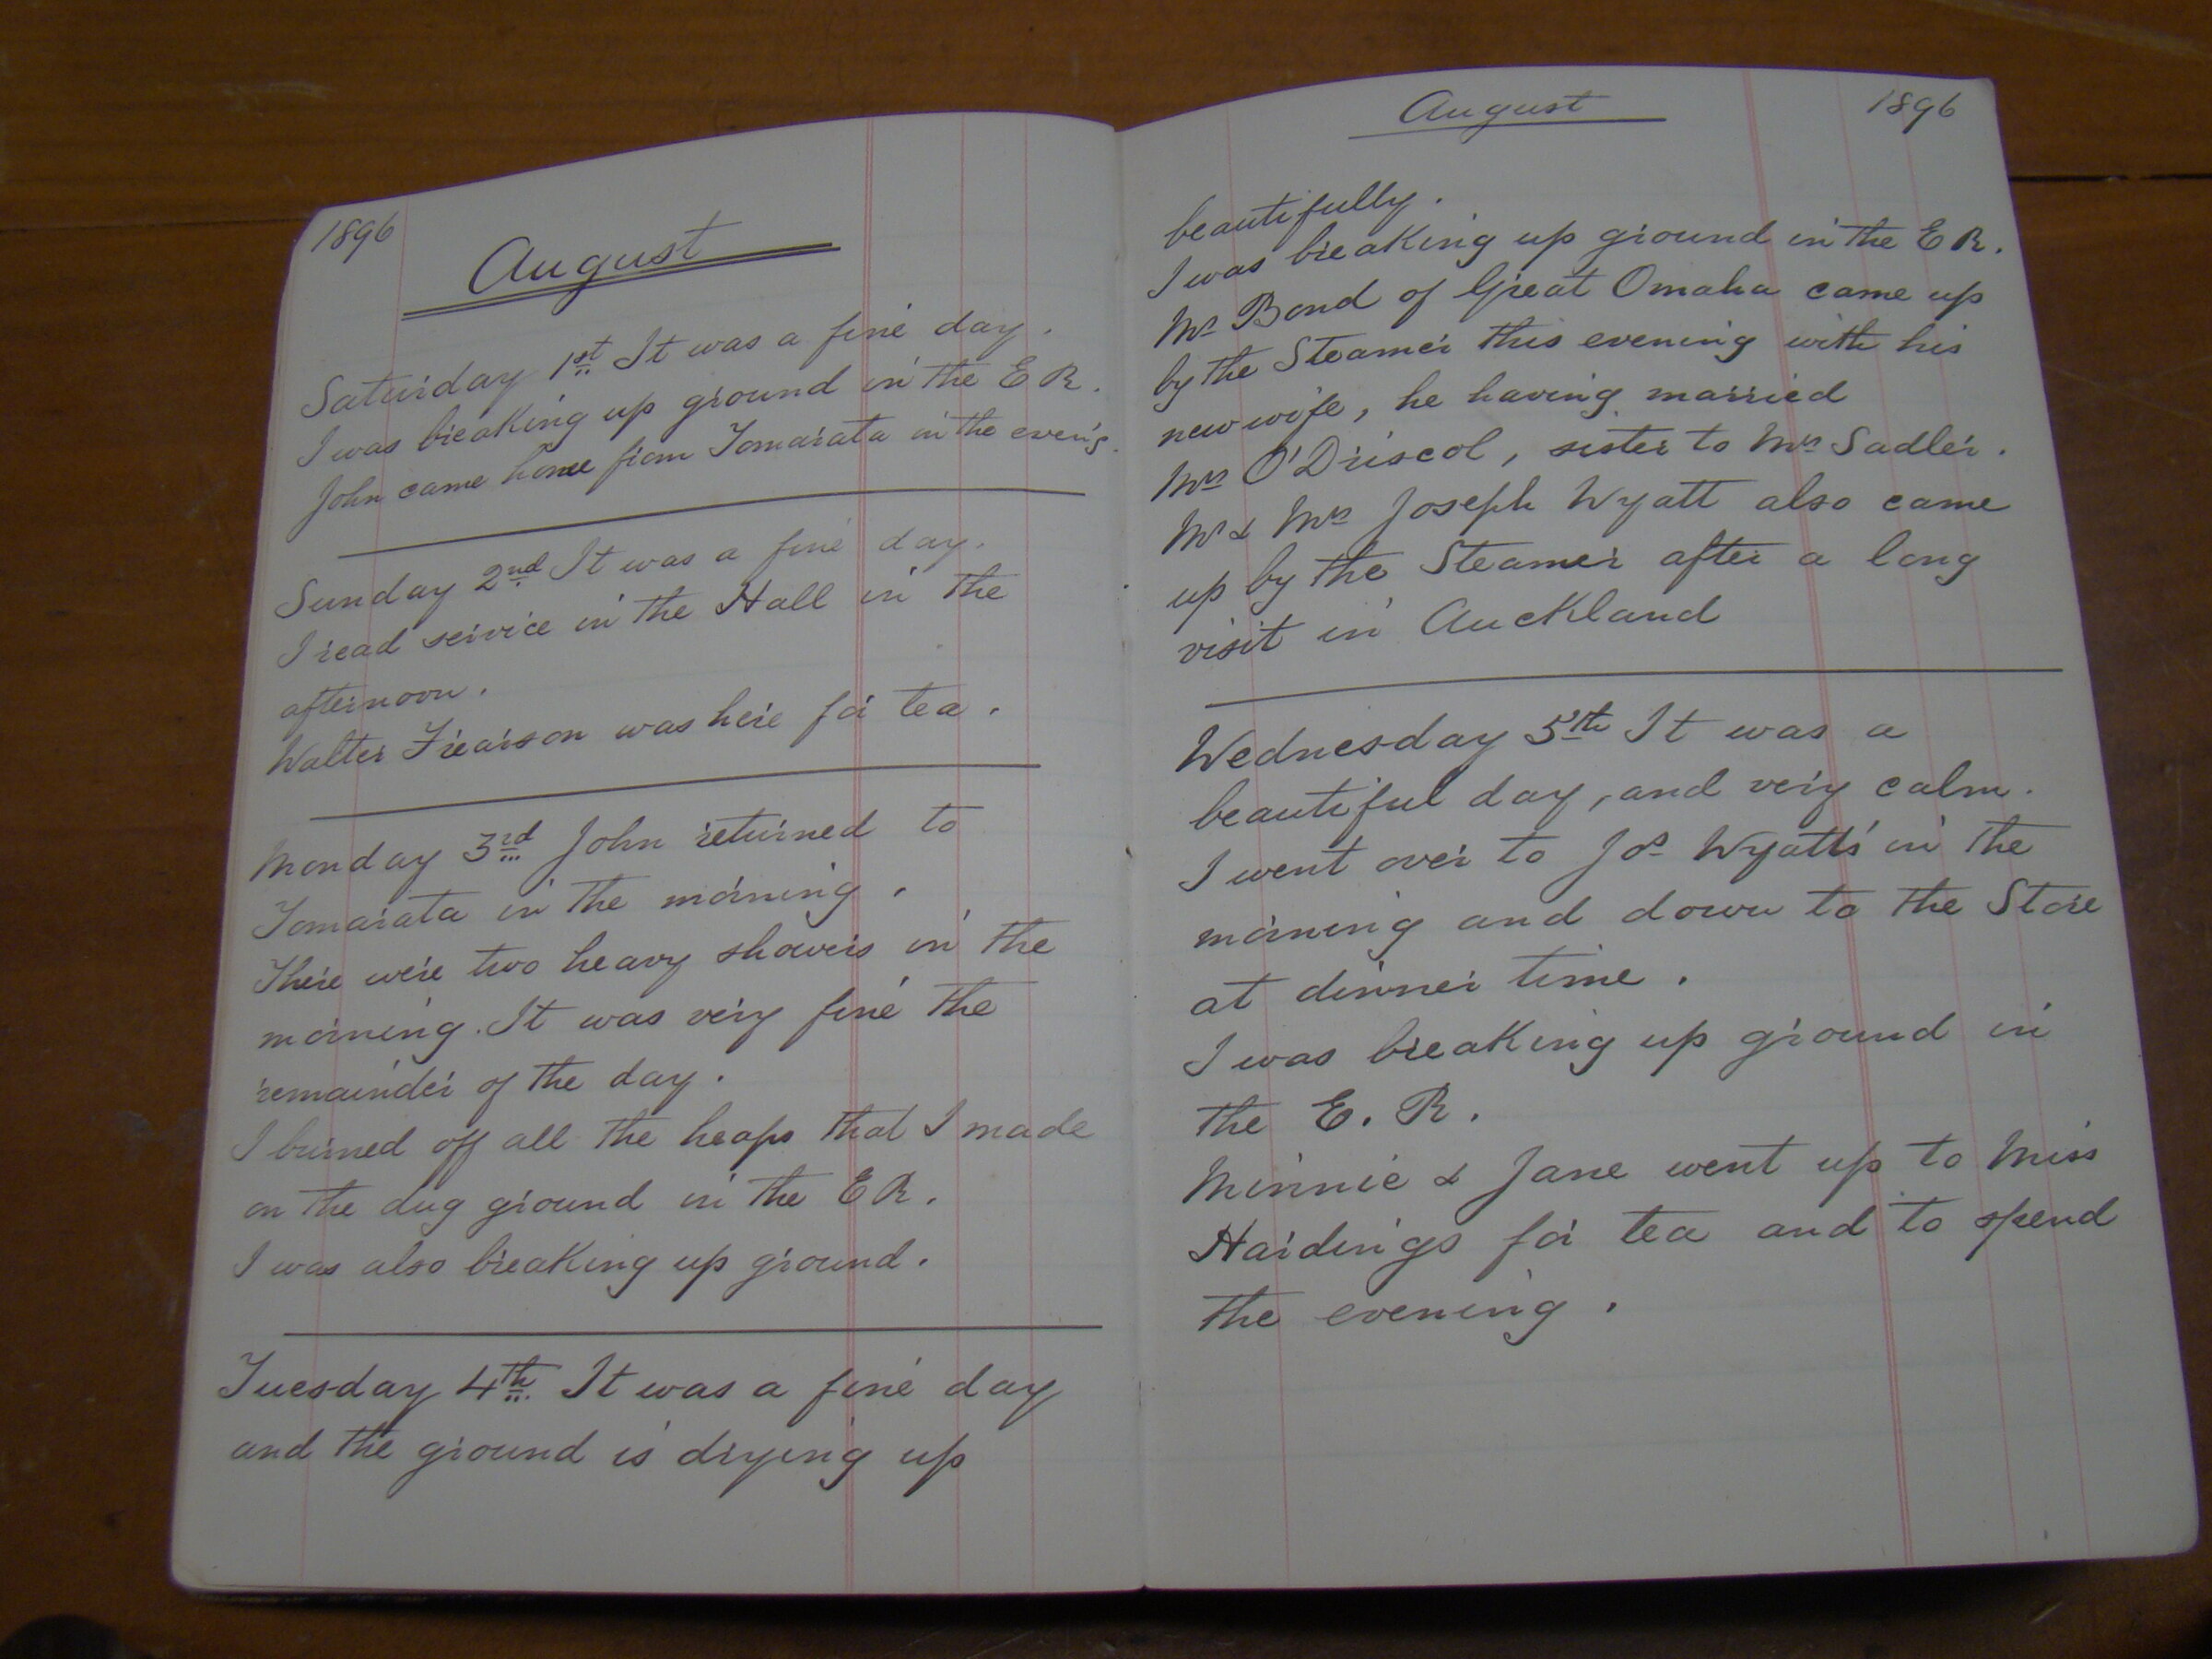 1896
August
Saturday 1st It was a fine day.
I was breaking up ground in the E R.
John came home from Tomarata in the even'g.
Sunday 2nd It was a fine day.
I read service in the Hall in the
afternoon.
Walter Frearson was here for tea.
Monday 3rd John returned to
Tomarata in the morning.
There were two heavy showers in the
morning. It was very fine the
remainder of the day.
I burned off all the heaps that I made
on the dug ground in the E R.
I was also breaking up ground.
Tuesday 4th It was a fine day
and the ground is drying up
August 1896
beautifully.
I was breaking up ground in the E R.
Mr Bond of Great Omaha came up
by the Steamer this evening with his
new wife, he having married
Mrs O'Driscol, sister to Mrs Sadler.
Mr & Mrs Joseph Wyatt also came
up by the Steamer after a long
visit in Auckland
Wednesday 5th It was a
beautiful day, and very calm.
I went over to Jos Wyatt's in the
morning and down to the Store
at dinner time.
I was breaking up ground in
the E. R.
Minnie & Jane went up to Miss
Hardings for tea and to spend
the evening.